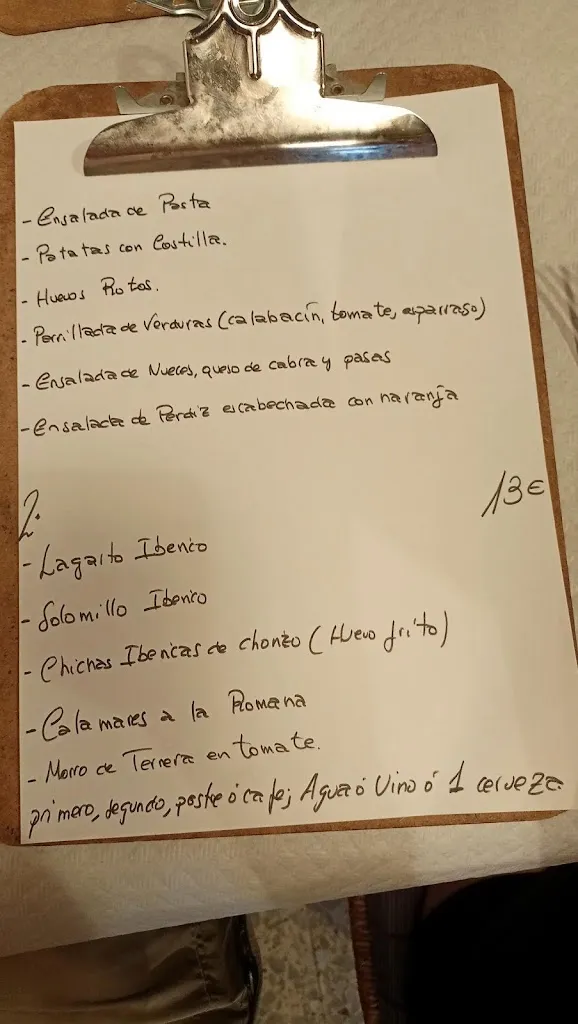 - Ensalada de Pasta
- Patatas con Costilla.
- Huevos Rotos.
- Parrillada de Verduras (calabacín, tomate, esparraso)
- Ensalada de Nueces, queso de cabra y pasas
- Ensalada de Perdiz escabechada con naranja
13€
2.
- Lagarto Iberico
- Solomillo Iberico
- Chichas Ibericas de chorizo (Huevo frito)
- Calamares a la Romana
- Morro de Ternera en tomate.
primero, segundo, postre ó cafe; Agua ó Vino ó 1 cerveza